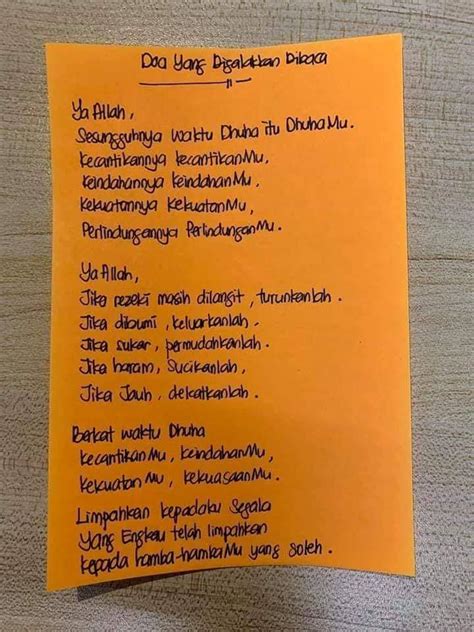 Doa Yang Digalakkan Dibaca
Ya Allah,
Sesungguhnya waktu Dhuha itu DhuhaMu.
Kecantikannya kecantikanMu,
Keindahannya KeindahanMu,
Kekuatannya KekuatanMu,
Perlindungannya PerlindunganMu.
Ya Allah,
Jika rezeki masih dilangit, turunkanlah.
Jika dibumi, keluarkanlah.
Jika sukar, permudahkanlah.
Jika haram, Sucikanlah,
Jika Jauh, dekatkanlah.
Berkat waktu Dhuha
kecantikanMu, keindahanMu,
KekuatanMu, kekuasaanMu.
Limpahkan kepadaku Segala
Yang Engkau telah limpahkan
kepada hamba-hambaMu yang soleh.